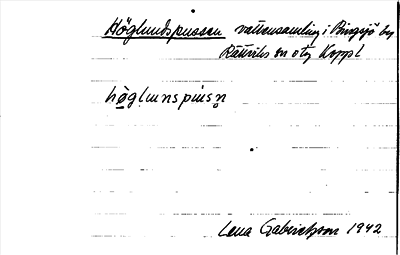 Höglundspussen vattensamling i Bingsjö by
Rättviks sn o tg Koppl
hö̱glunspusn̥
Lena Gabrielsson 1942